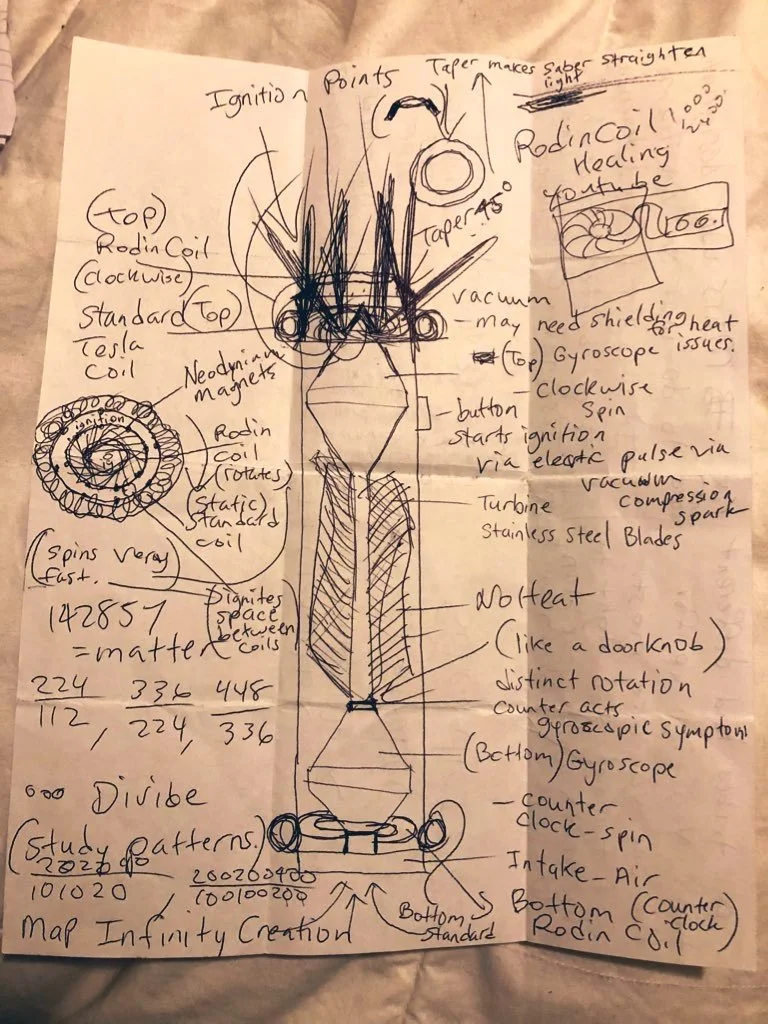 Taper makes saber straighten
light
Ignition Points
Rodin Coil
Healing
youtube
Taper 45°
(Top)
Rodin Coil
(clockwise)
Standard (Top)
Tesla
Coil
vacuum
- may need shielding
for heat
issues.
(Top) Gyroscope
- clockwise
Spin
- button
starts ignition
via electic pulse via
vacuum
compression
spark
Neodynium
magnets
ignition
Rodin
coil
(rotates)
(Static)
Standard
coil
Turbine
Stainless Steel Blades
(Spins very
fast.)
Dignites
space
between
coils
142857
= matter
No Heat
(like a doorknob)
distinct rotation
counter acts
gyroscopic symptom
224 336 448
112, 224, 336
(Bottom) Gyroscope
- counter
clock-spin
Divibe
(Study patterns.)
101020
200200400
100100200
Intake - Air
Map Infinity Creation
Bottom
Standard
Bottom (Counter
Clock)
Rodin Coil